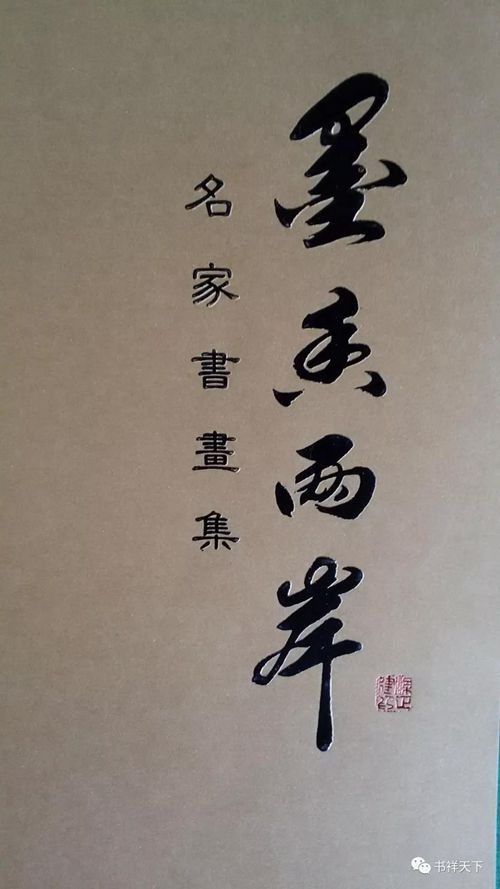 墨香两岸
名家書畫集
书祥天下